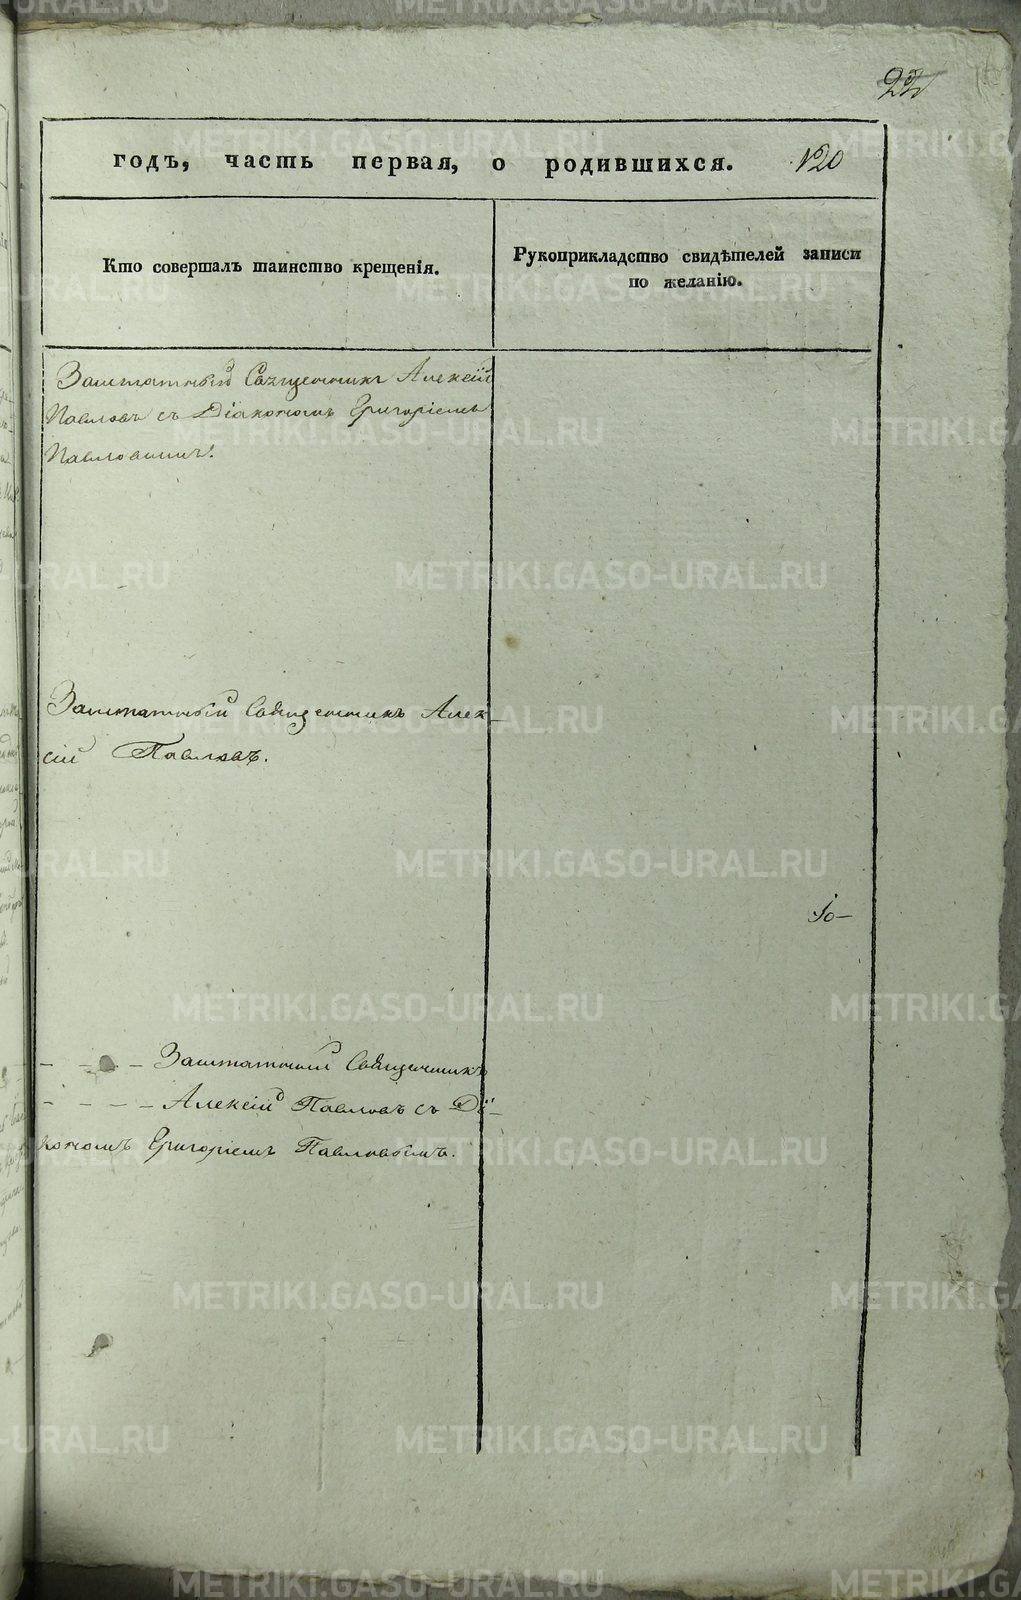 годъ, часть первая, о родившихся. 120
Кто совершалъ таинство крещенія.
Рукоприкладство свидѣтелей записи
по желанію.
Заштатный Священникъ Алексій
Павловъ съ Діакономъ Григоріемъ
Павловымъ.
Заштатный Священникъ Алек-
сій Павловъ.
Іо-
- - - Заштатный Священникъ
- - - - Алексій Павловъ съ Ді-
кономъ Григоріемъ Павловымъ.
METRIKI.GASO-URAL.RU